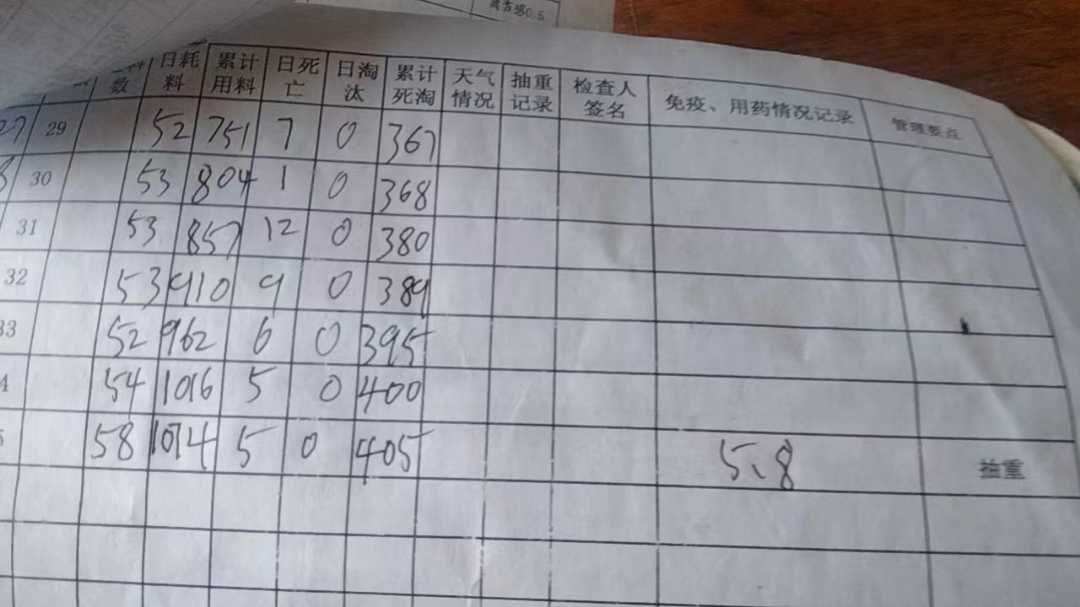 日耗料 累计用料 日死亡 日淘汰 累计死淘 天气情况 抽重记录 检查人签名 免疫、用药情况记录 管理要点
29 52 751 7 0 367
30 53 804 1 0 368
31 53 857 12 0 380
32 53 910 9 0 389
33 52 962 6 0 395
54 1016 5 0 400
58 1074 5 0 405 5、8 抽重